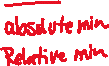 absolute min
Relative min